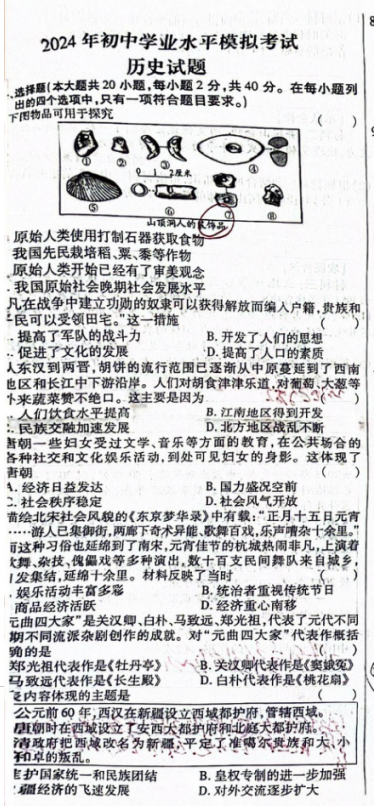 2024年初中学业水平模拟考试
历史试题
、选择题(本大题共20小题,每小题2分,共40分。在每小题列
出的四个选项中,只有一项符合题目要求。)
下图物品可用于探究 ( )
① ② ③ ④
0 1 2厘米
⑤ ⑥ ⑦ ⑧
山顶洞人的装饰品
原始人类使用打制石器获取食物
我国先民栽培稻、粟、黍等作物
原始人类开始已经有了审美观念
我国原始社会晚期社会发展水平
凡在战争中建立功勋的奴隶可以获得解放而编入户籍,贵族和
平民可以受领田宅。”这一措施 ( )
提高了军队的战斗力 B. 开发了人们的思想
促进了文化的发展 D. 提高了人口的素质
从东汉到两晋,胡饼的流行范围已逐渐从中原蔓延到了西南
地区和长江中下游沿岸。人们对胡食津津乐道,对葡萄、大葱等
外来蔬菜赞不绝口。这主要是因为 ( )
人们饮食水平提高 B. 江南地区得到开发
. 民族交融加速发展 D. 北方地区战乱不断
唐朝一些妇女受过文学、音乐等方面的教育,在公共场合的
各种社交和文化娱乐活动,到处可见妇女的身影。这体现了
唐朝 ( )
A. 经济日益发达 B. 国力盛况空前
C. 社会秩序稳定 D. 社会风气开放
描绘北宋社会风貌的《东京梦华录》中有载:“正月十五日元宵
……游人已集御街,两廊下奇术异能、歌舞百戏,乐声嘈杂十余里。”
而这种习俗也延绵到了南宋,元宵佳节的杭城热闹非凡,上演着
歌舞、杂技、傀儡戏等多种演出,数十百支民间舞队来自城乡,
发集结,延绵十余里。材料反映了当时 ( )
. 娱乐活动丰富多彩 B. 统治者重视传统节日
商品经济活跃 D. 经济重心南移
元曲四大家”是关汉卿、白朴、马致远、郑光祖,代表了元代不同
期不同流派杂剧创作的成就。对“元曲四大家”代表作概括
确的是 ( )
郑光祖代表作是《牡丹亭》 B. 关汉卿代表作是《窦娥冤》
马致远代表作是《长生殿》 D. 白朴代表作是《桃花扇》
内容体现的主题是 ( )
公元前60年,西汉在新疆设立西域都护府,管辖西域。
唐朝时在西域设立了安西大都护府和北庭大都护府。
清政府把西域改名为新疆;平定了准噶尔贵族和大、小
和卓的叛乱。
维护国家统一和民族团结 B. 皇权专制的进一步加强
疆经济的飞速发展 D. 对外交流逐步扩大